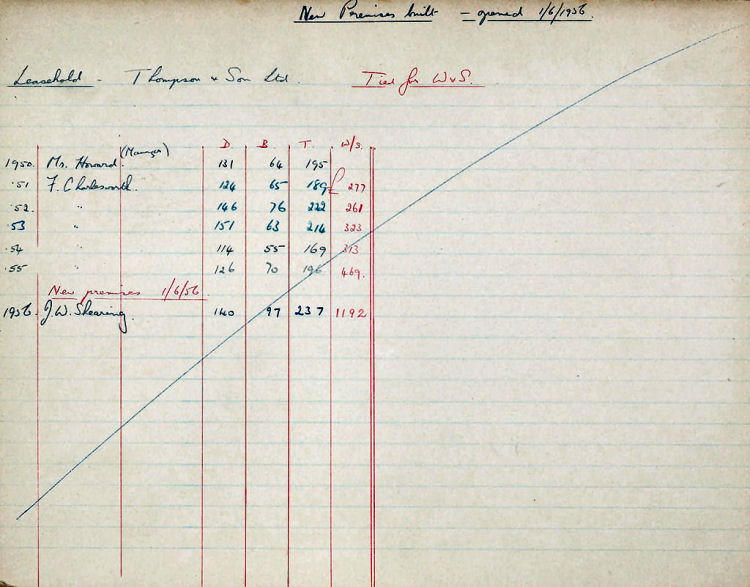 New Premises built - opened 1/6/1956.
Leasehold - Thompson & Son Ltd. Tied for W&S.
(Manager) D B T. W/S.
1950. Mr. Howard. 131 64 195
·51 F. Charlesworth. 124 65 189 £ 277
·52. " 146 76 222 261
·53 " 151 63 214 323
·54 " 114 55 169 313
·55 " 126 70 196 469.
New premises 1/6/56.
1956. J.W. Shearing. 140 97 237 1192